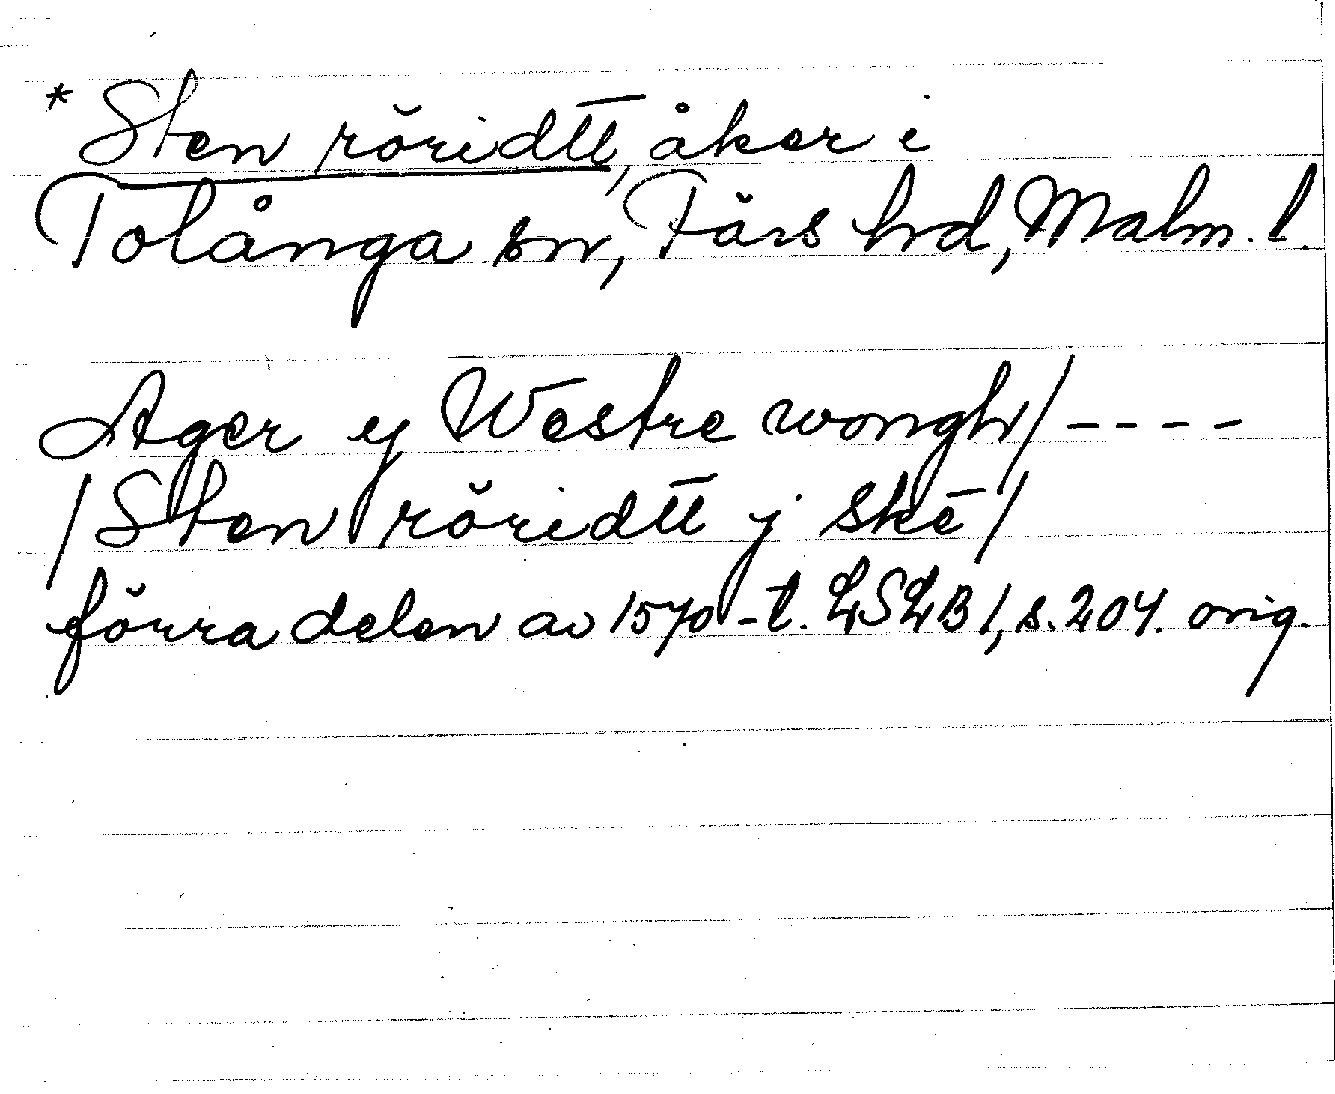 * Sten röridtt, åker i
Tolånga sn, Färs hd, Malm. l.
Ager y Westre wongh/ - - - -
/Sten röridtt j skē/
förra delen av 1570-t. LSLB 1, s. 204. orig.